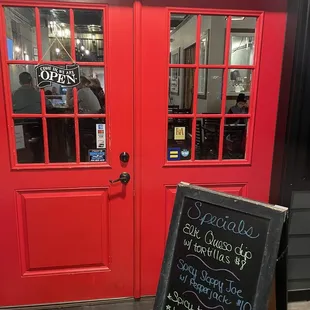 COME IN WE ARE
OPEN
Specials
Elk Queso dip
w/ tortillas
Spicy Sloppy Joe
w/ Pepperjack $10